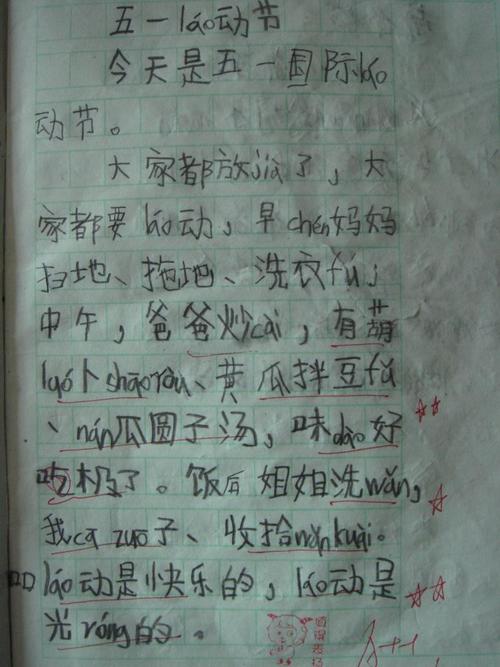 五一láo动节
今天是五一国际láo
动节。
大家都放jià了，大
家都要láo动，早chén妈妈
扫地、拖地、洗衣fú，
中午，爸爸炒cài，有葫
luó卜shāoròu、黄瓜拌豆fǔ
、nán瓜圆子汤，味dào好
吃极了。饭后姐姐洗wǎn，
我cā zuō子、收拾wǎn kuài。
láo动是快乐的，láo动是
光róng的。
A++1